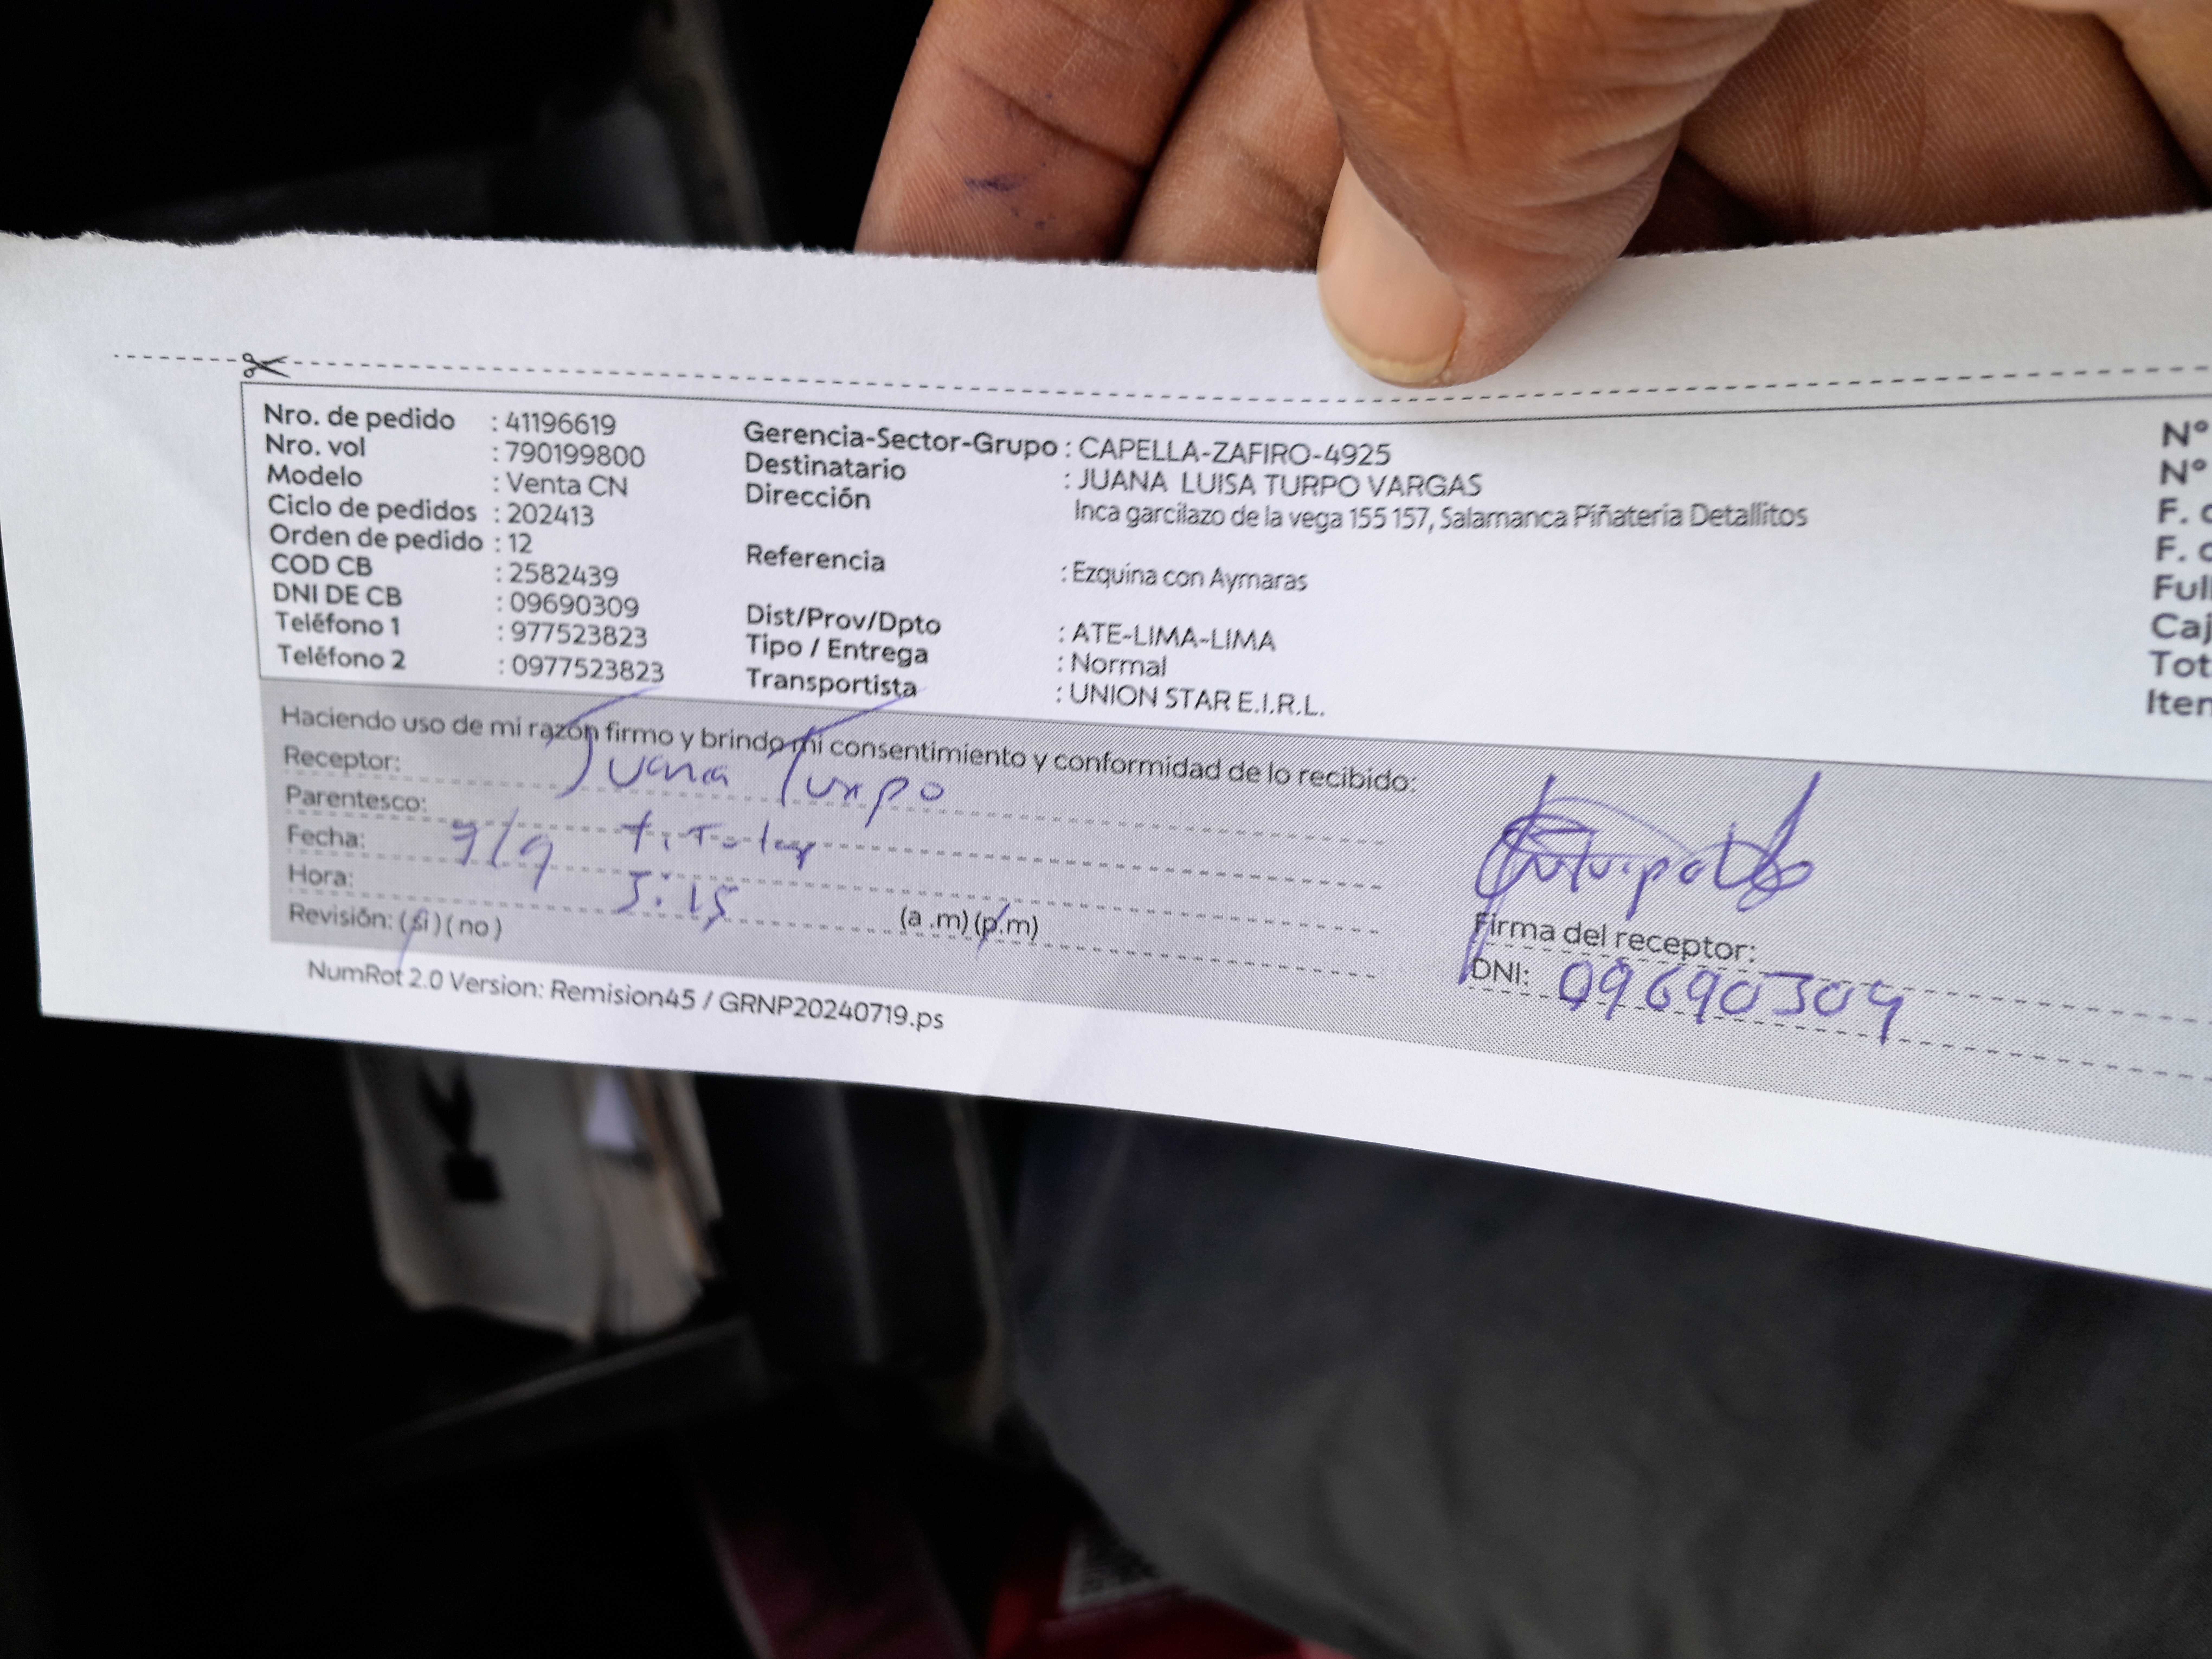 Nro. de pedido : 41196619
Nro. vol : 790199800
Modelo : Venta CN
Ciclo de pedidos : 202413
Orden de pedido : 12
COD CB : 2582439
DNI DE CB : 09690309
Teléfono 1 : 977523823
Teléfono 2 : 0977523823
Gerencia-Sector-Grupo : CAPELLA-ZAFIRO-4925
Destinatario : JUANA LUISA TURPO VARGAS
Dirección Inca garcilazo de la vega 155 157, Salamanca Piñateria Detallitos
Referencia : Ezquina con Aymaras
Dist/Prov/Dpto : ATE-LIMA-LIMA
Tipo / Entrega : Normal
Transportista : UNION STAR E.I.R.L.
N°
N°
F.
F.
Haciendo uso de mi razón firmo y brindo mi consentimiento y conformidad de lo recibido:
Receptor: Juana Turpo
Parentesco: titular
Fecha: 9/9
Hora: 5:15 (a.m) (p.m)
Revisión: (si) (no)
Firma del receptor:
DNI: 09690309
NumRot 2.0 Version: Remision45 / GRNP20240719.ps